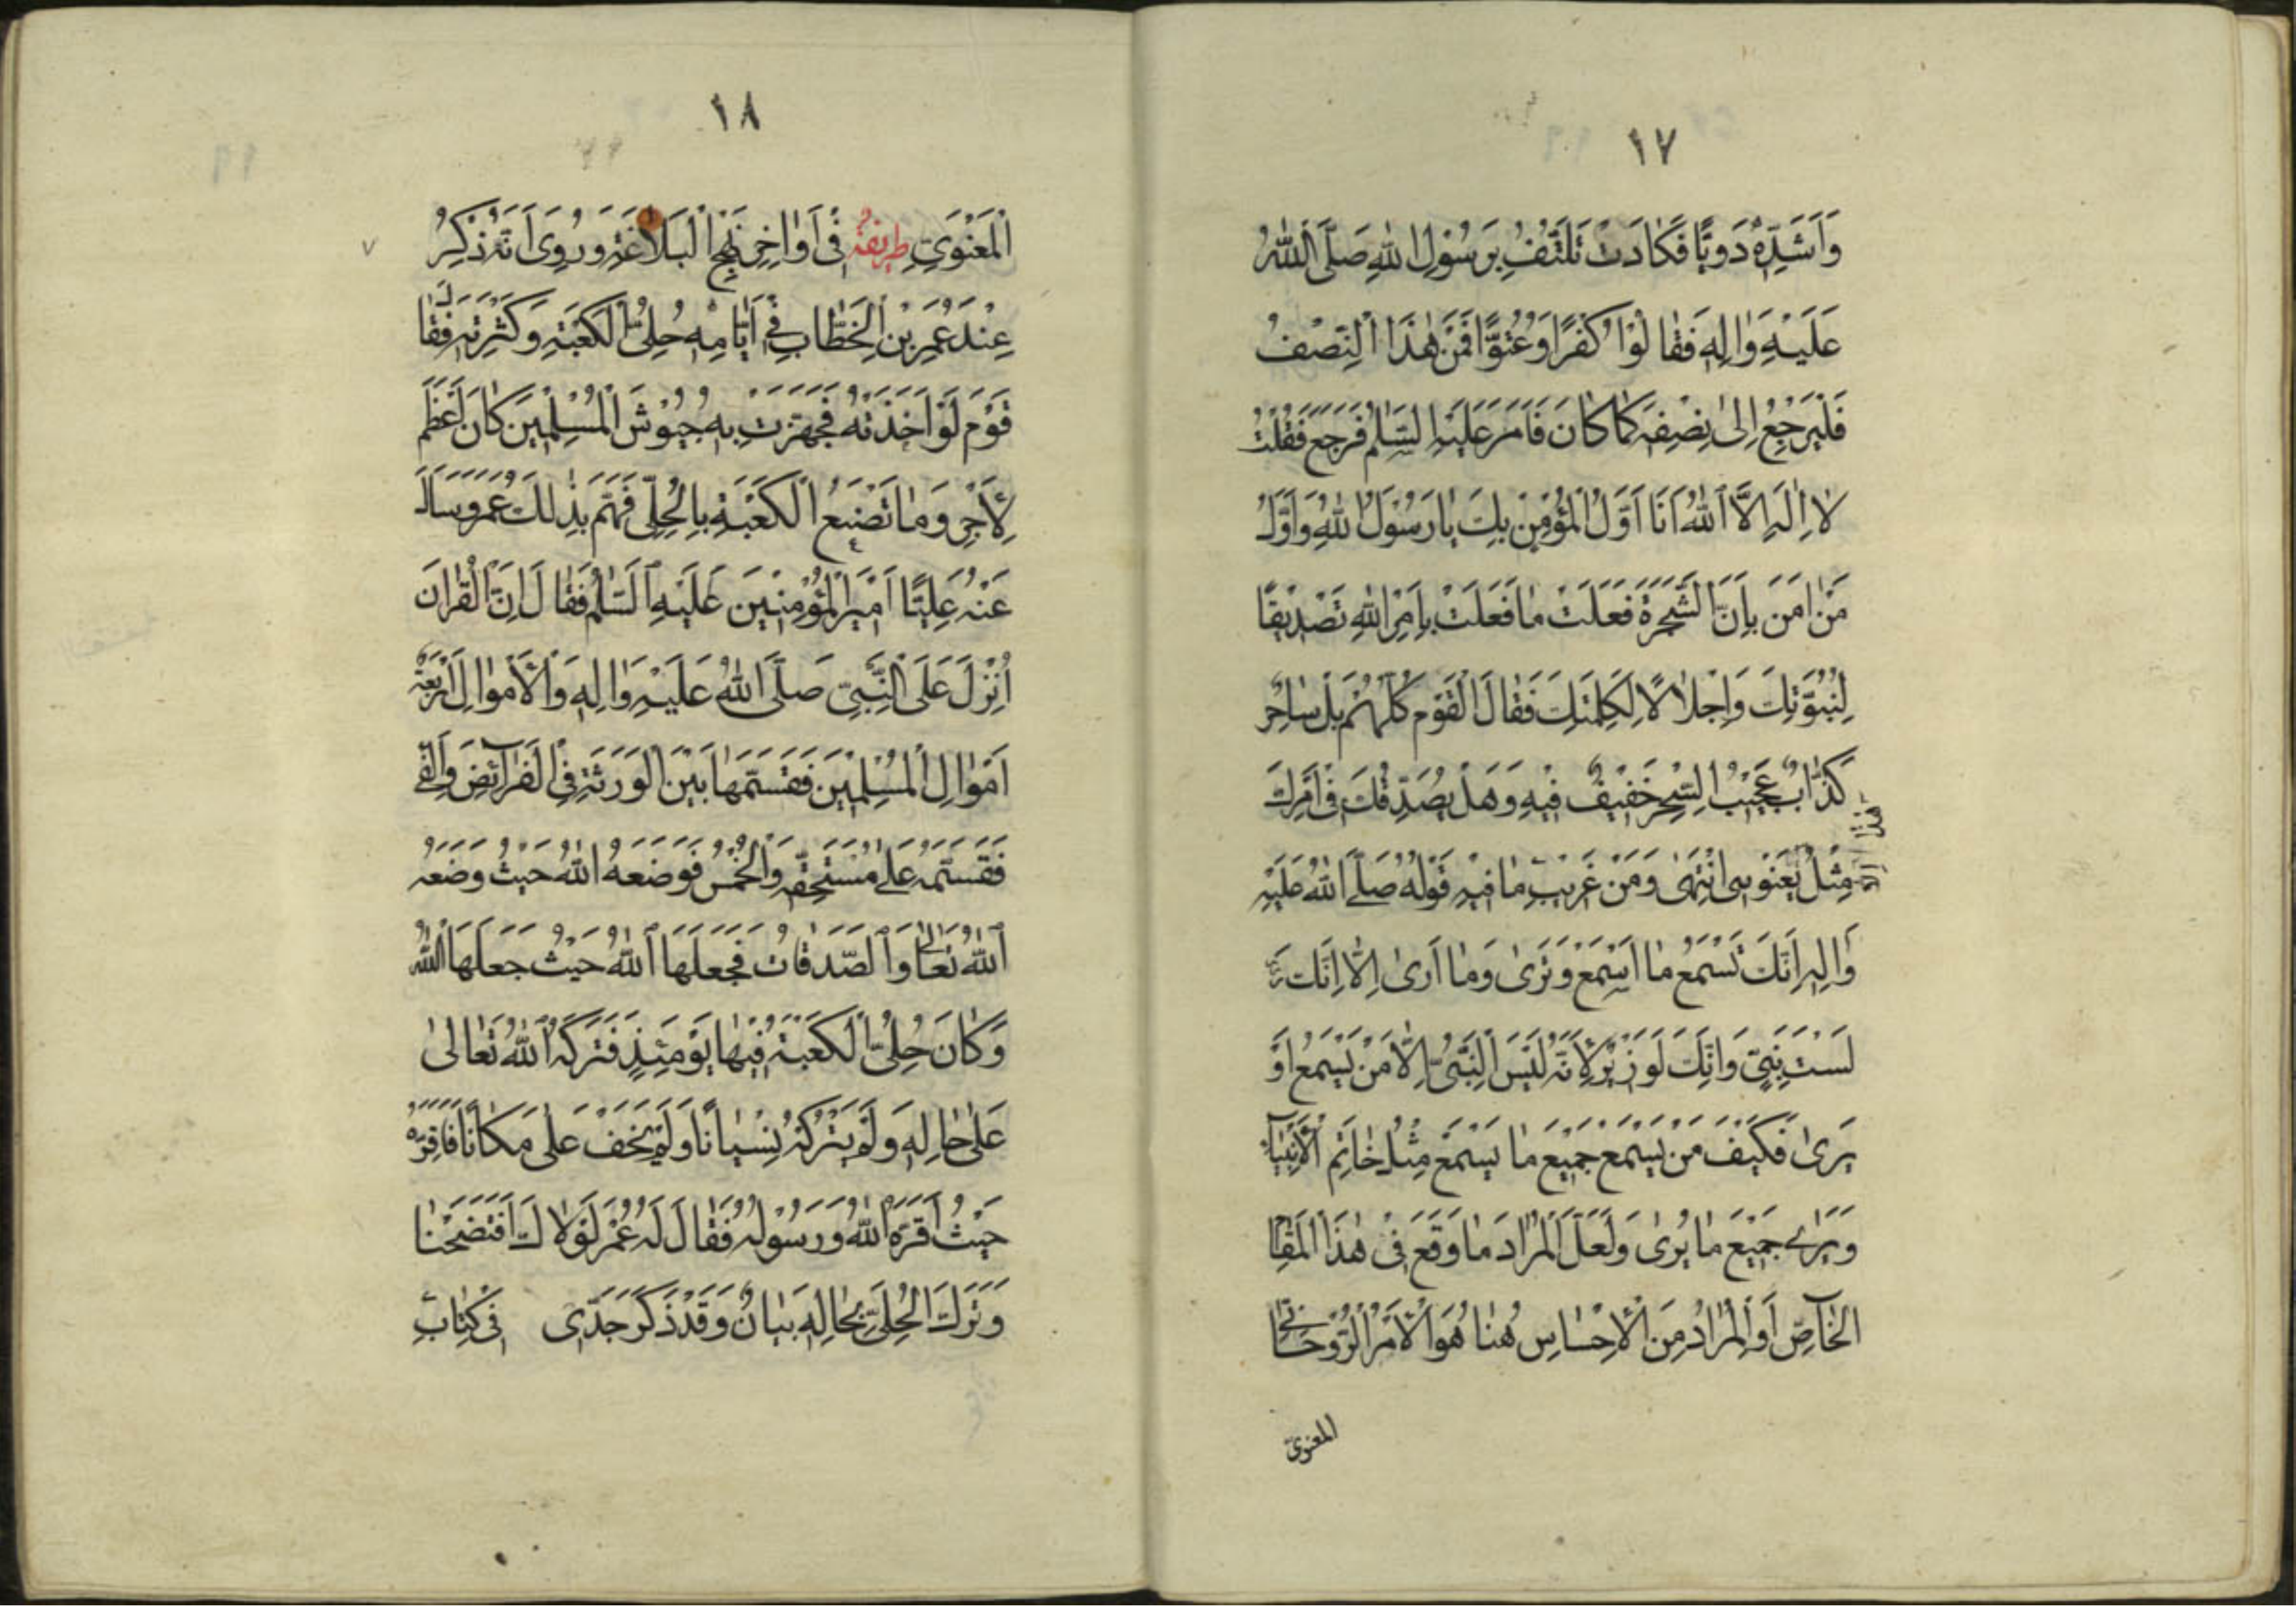 ١٧
وَاَشَدِّهٖ دَوِیًّا فَكَادَتْ تَلْتَفُّ بِرَسُوْلِ اللهِ صَلَّى اللهُ
عَلَيْهِ وَاٰلِهٖ فَقٰالُوْا كُفْرًا وَعُتُوًّا فَمُرْ هٰذَا النِّصْفُ
فَلْيَرْجِعْ اِلٰى نِصْفِهٖ كَمٰا كٰانَ فَاَمَرَ عَلَيْهِ السَّلٰمُ فَرَجَعَ فَقُلْتُ
لٰا اِلٰهَ اِلَّا اللهُ اَنَا اَوَّلُ الْمُؤْمِنْ بِكَ يٰا رَسُوْلَ اللهِ وَاَوَّلُ
مَنْ اٰمَنَ بِاَنَّ الشَّجَرَةَ فَعَلَتْ مٰا فَعَلَتْ بِاَمْرِ اللهِ تَصْدِيْقًا
لِنُبُوَّتِكَ وَاِجْلٰالًا لِكَلِمَتِكَ فَقٰالَ الْقَوْم كُلُّهُمْ بَلْ سٰاحِرٌ
كَذّٰابٌ عَجِيْبُ السِّحْرِ خَفِيْفٌ فِيْهِ وَهَلْ يُصَدِّقُكَ فِى اَمْرِكَ
اِلَّا
هٰذَا
مِثْلُ يَعْنُوْنِى انْتَهٰى وَمَنْ غَرِيْبِ مٰا فِيْهِ قَوْلُهُ صَلَّى اللهُ عَلَيْهِ
وَاٰلِهٖ اِنَّكَ تَسْمَعُ مٰا اَسْمَعُ وَتَرٰى وَمٰا اَرٰى اِلّٰا اِنَّكَ
لَسْتَ بِنَبِىٍّ وَاِنَّكَ لَوَزِيْرٌ لِاَنَّهُ لَيْسَ النَّبِىُّ اِلّٰا مَنْ يَسْمَعُ اَوْ
يَرٰى فَكَيْفَ مَنْ يَسْمَعُ جَمِيْعَ مٰا يَسْمَعُ مِثْلُ خٰاتِمِ الْاَنْبِيٰاۤءِ
وَيَرٰى جَمِيْعَ مٰا يُرٰى وَلَعَلَّ الْمُرٰادَ مٰا وَقَعَ فِىْ هٰذَا الْمَقٰامِ
الْخٰاۤصِّ اَوِ الْمُرٰادُ مِنَ الْاِحْسٰاسِ هُنٰا هُوَ الْاَمْرُ الرُّوْحٰانِىُّ
المعنوىّ
١٨
الْمَعْنَوِىِّ طريفة فِىْ اَوٰاخِرِ نَهْجِ الْبَلٰاغَةِ وَرُوِىَ اَنَّهُ ذُكِرَ
عِنْدَ عُمَرِ بْنِ الْخَطّٰابِ فِىْ اَيّٰامِهٖ حُلِىُّ الْكَعْبَةِ وَكَثْرَتُهٗ فَقٰالَ
قَوْمٌ لَوْ اَخَذْتَهُ فَجَهَّزْتَ بِهٖ جُيُوْشَ الْمُسْلِمِيْنَ كٰانَ اَعْظَمَ
لِلْاَجْرِ وَمٰا تَصْنَعُ الْكَعْبَةُ بِالْحُلِىِّ فَهَمَّ بِذٰلِكَ عُمَرُ وَسَاَلَ
عَنْهُ عَلِيًّا اَمِيْرَ الْمُؤْمِنِيْنَ عَلَيْهِ السَّلٰمُ فَقٰالَ اِنَّ الْقُرْاٰنَ
اُنْزِلَ عَلَى النَّبِىِّ صَلَّى اللهُ عَلَيْهِ وَاٰلِهٖ وَالْاَمْوٰالُ اَرْبَعَةٌ
اَمْوٰالُ الْمُسْلِمِيْنَ فَقَسَّمَهٰا بَيْنَ الْوَرَثَةِ فِى الْفَرٰاۤئِضِ وَالْفَىْءُ
فَقَسَّمَهُ عَلٰى مُسْتَحِقِّهٖ وَالْخُمْسُ فَوَضَعَهُ اللهُ حَيْثُ وَضَعَهُ
اللهُ تَعٰالٰى وَالصَّدَقٰاتُ فَجَعَلَهَا اللهُ حَيْثُ جَعَلَهَا اللهُ
وَكٰانَ حُلِىُّ الْكَعْبَةِ فِيْهٰا يَوْمَئِذٍ فَتَرَكَهُ اللهُ تَعٰالٰى
عَلٰى حٰالِهٖ وَلَمْ يَتْرُكْهُ نِسْيٰانًا وَلَمْ يَخْفَ عَلٰى مَكٰانًا فَاَقِرَّهُ
حَيْثُ اَقَرَّهُ اللهُ وَرَسُوْلُهُ فَقٰالَ لَهُ عُمَرُ لَوْلٰاكَ افْتَضَحْنٰا
وَتَرَكَ الْحُلِىَّ بِحٰالِهٖ بَيٰانٌ وَقَدْ ذَكَرَ جَدِّى فِىْ كِتٰابِ